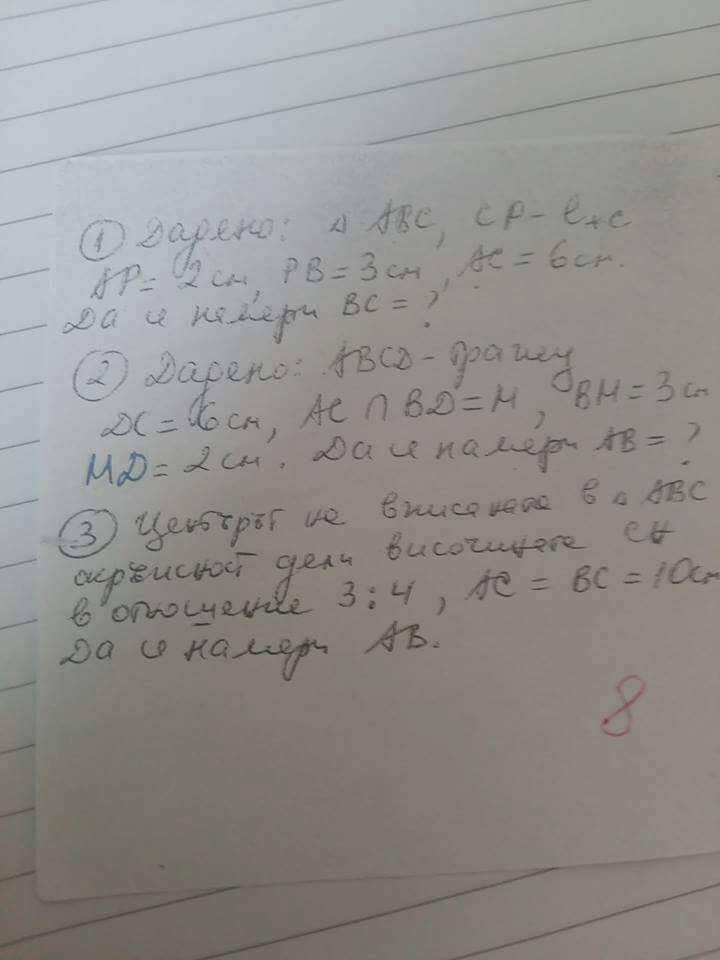 ① Дадено: △ ABC, CP - l∢C
AP = 2 см, PB = 3 см, AC = 6 см.
Да се намери BC = ?
② Дадено: ABCD - трапец
DC = 6 см, AC ∩ BD = M, BM = 3 см
MD = 2 см. Да се намери AB = ?
③ Центърът на вписаната в △ ABC
окръжност дели височината CH
в отношение 3:4, AC = BC = 10 см
Да се намери AB.
8